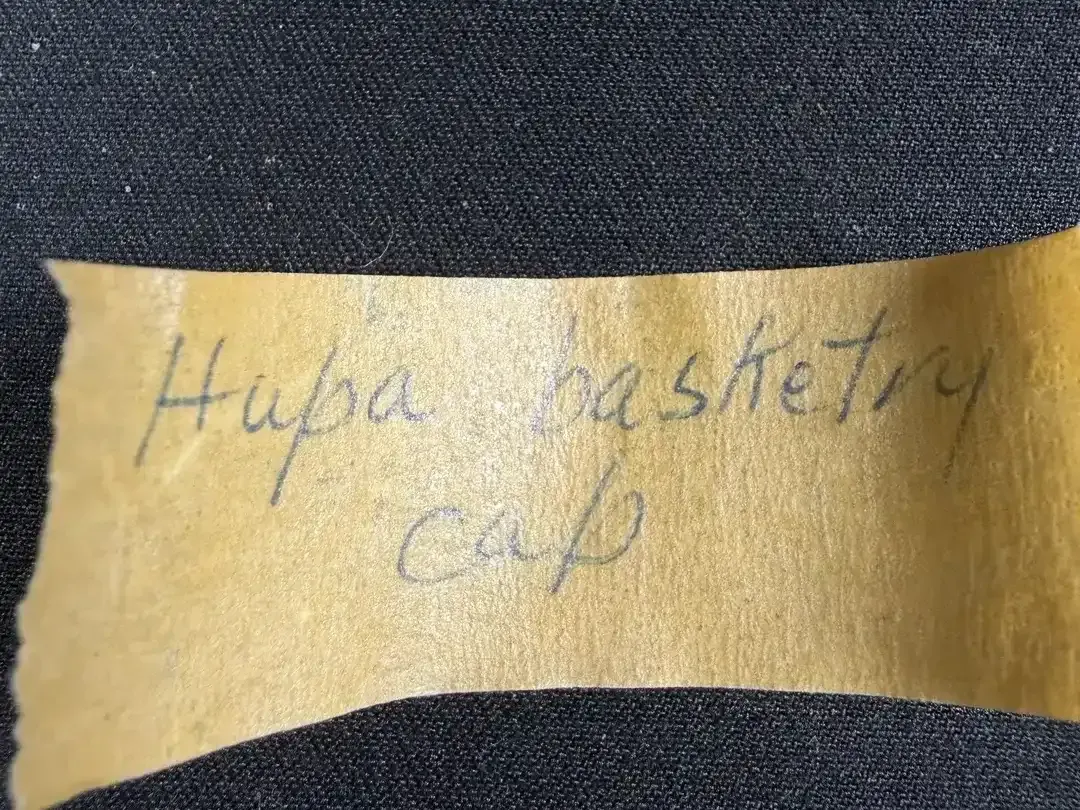 Hupa basketry
cap